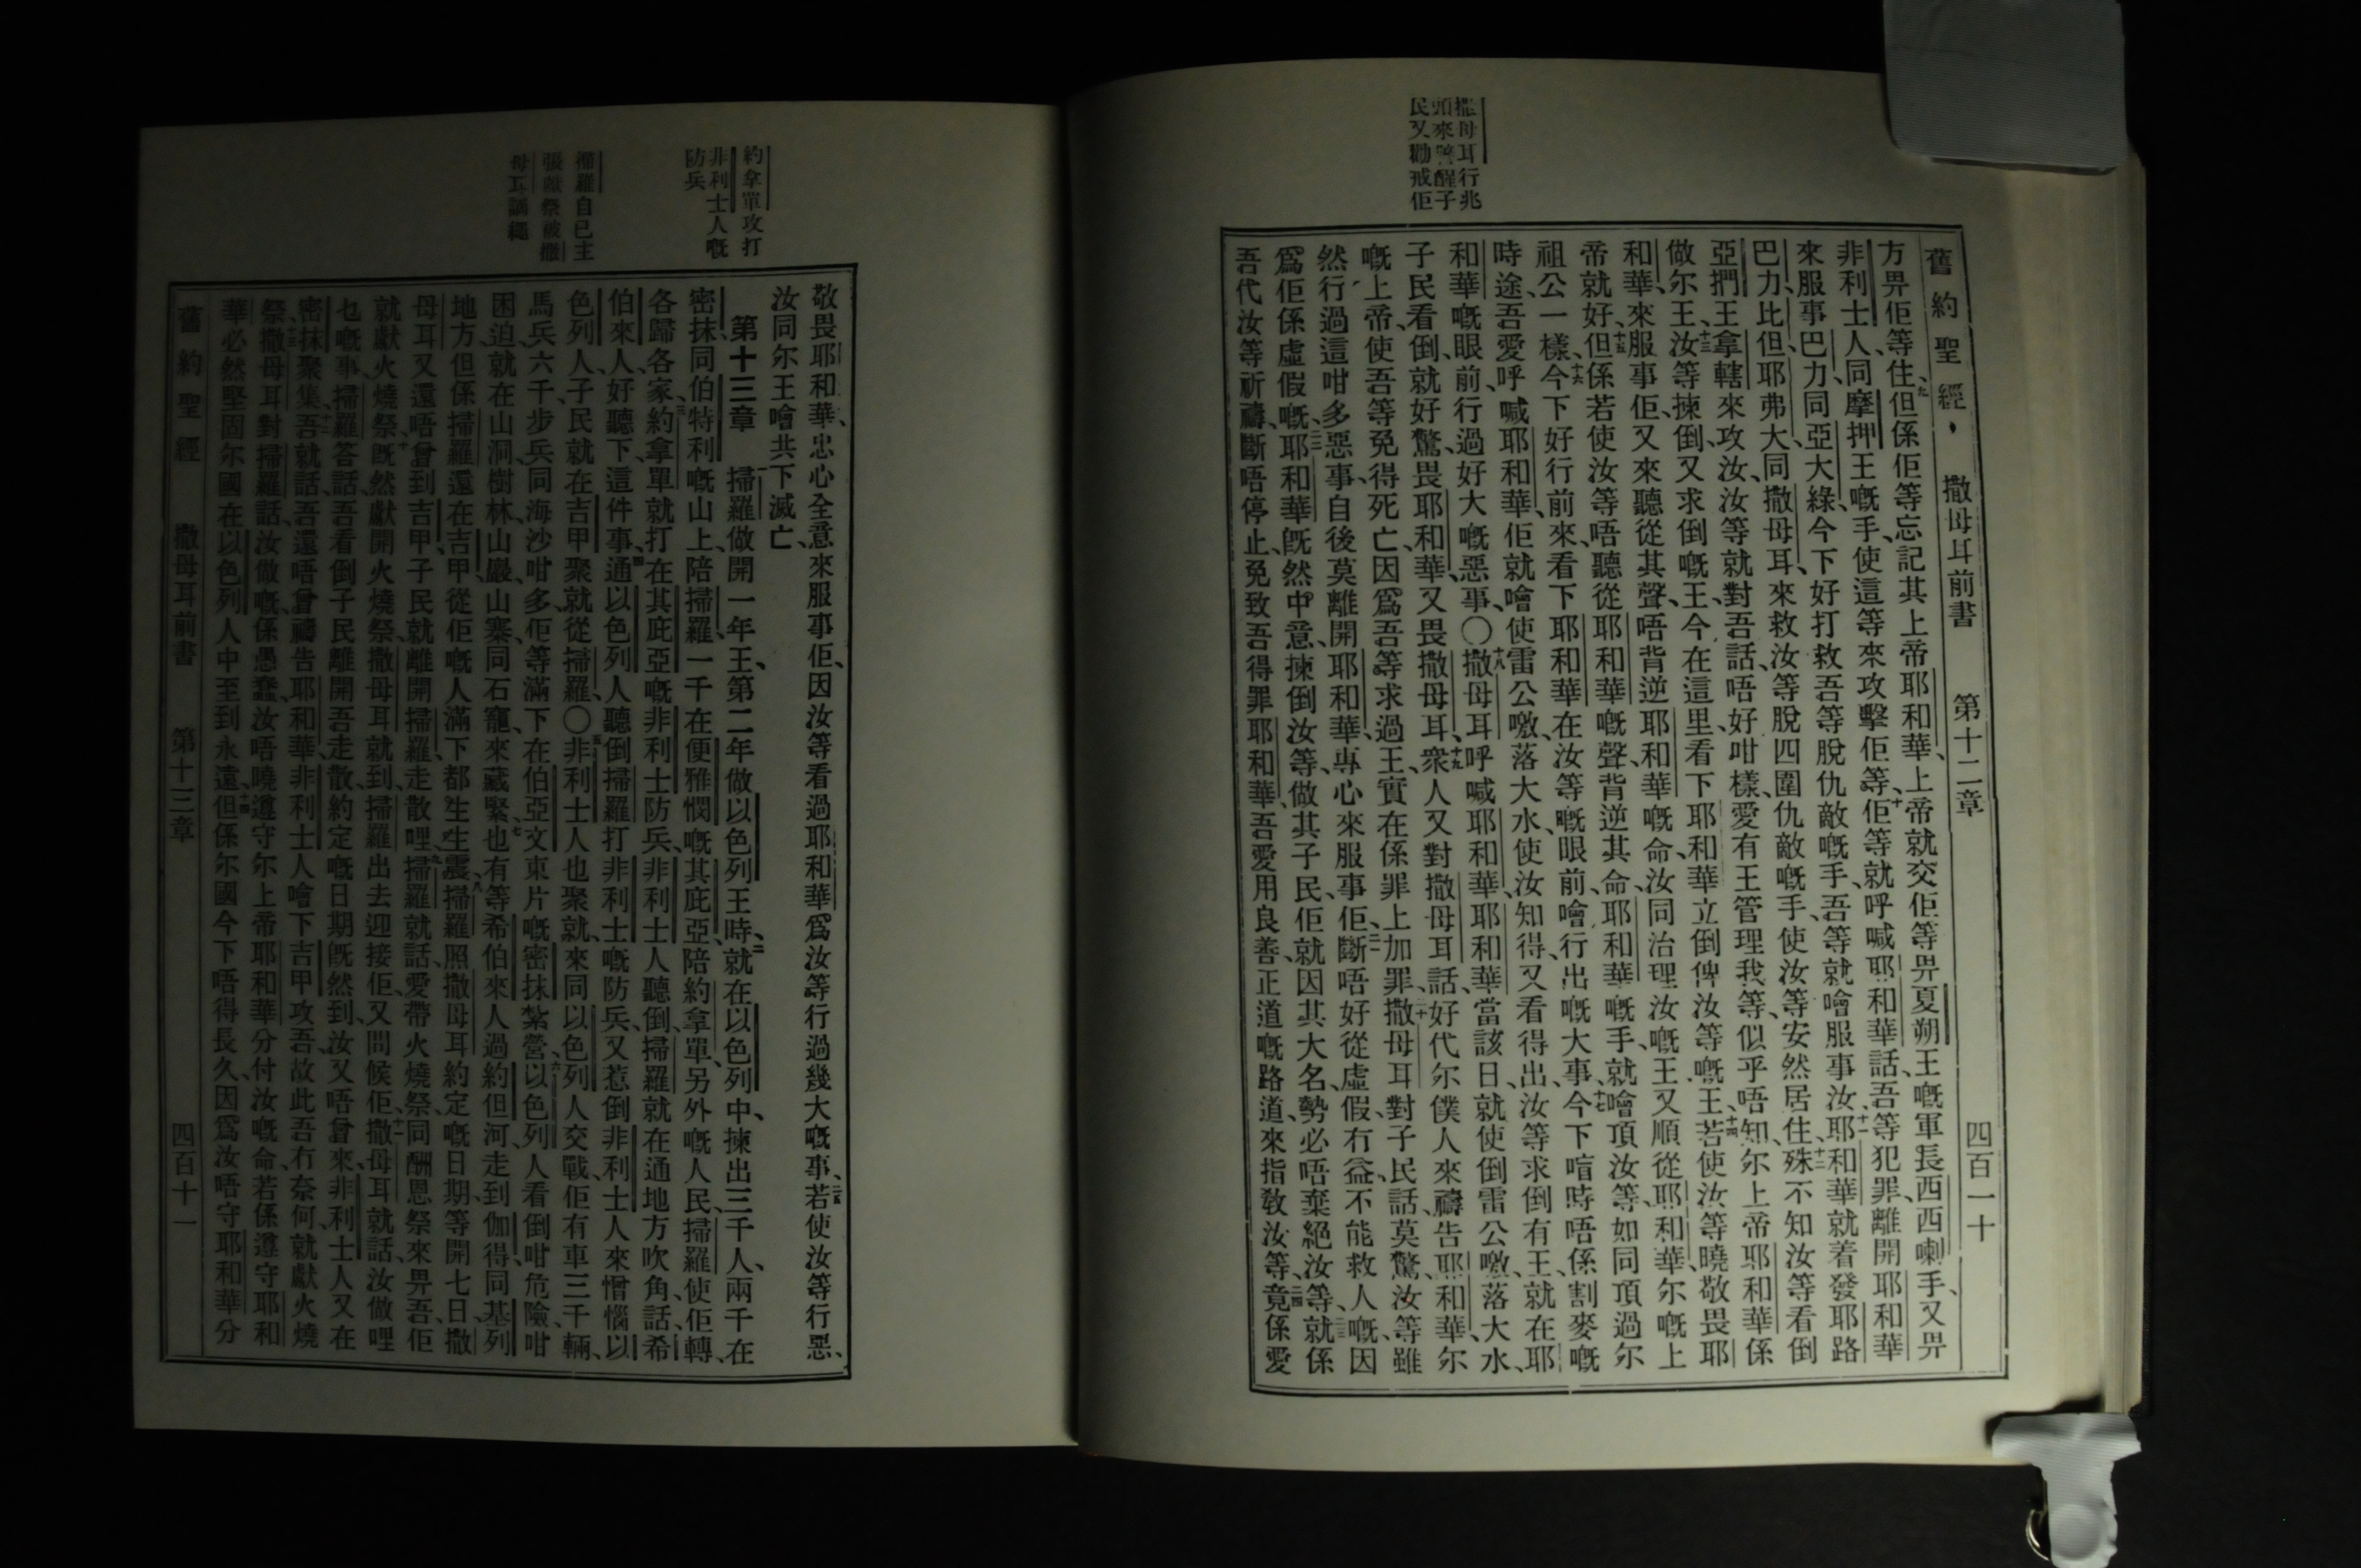 舊約聖經 撒母耳前書 第十二章 四百一十
撒母耳行兆
頭來警醒子
民又勸戒佢
方畀佢等住、九但係佢等忘記其上帝耶和華、上帝就交佢等畀夏朔王嘅軍長西西喇手、又畀
非利士人、同摩押王嘅手、使這等來攻擊佢等、十佢等就呼喊耶和華話、吾等犯罪、離開耶和華
來服事巴力、同亞大綠、今下好打救吾等脫仇敵嘅手、吾等就噲服事汝、十一耶和華就着發耶路
巴力、比但、耶弗大、同撒母耳、來救汝等脫四圍仇敵嘅手、使汝等安然居住、十二殊不知汝等看倒
亞捫王拿轄來攻汝、汝等就對吾話、唔好咁樣、愛有王管理我等、似乎唔知尔上帝耶和華係
做尔王、十三汝等揀倒又求倒嘅王、今在這里、看下耶和華立倒俾汝等嘅王、十四若使汝等曉敬畏耶
和華、來服事佢、又來聽從其聲、唔背逆耶和華嘅命、汝同治理汝嘅王、又順從耶和華尔嘅上
帝就好、十五但係若使汝等唔聽從耶和華嘅聲、背逆其命、耶和華嘅手、就噲頂汝等、如同頂過尔
祖公一樣、十六今下好行前來、看下耶和華在汝等嘅眼前、噲行出嘅大事、十七今下喑時唔係割麥嘅
時途、吾愛呼喊耶和華、佢就噲使雷公噭落大水、使汝知得、又看得出、汝等求倒有王、就在耶
和華嘅眼前、行過好大嘅惡事、〇十八撒母耳呼喊耶和華、耶和華當該日、就使倒雷公噭、落大水、
子民看倒、就好驚畏耶和華、又畏撒母耳、十九衆人又對撒母耳話、好代尔僕人來禱告耶和華、尔
嘅上帝、使吾等免得死亡、因爲吾等求過王、實在係罪上加罪、二十撒母耳對子民話、莫驚、汝等雖
然行過這咁多惡事、自後莫離開耶和華、專心來服事佢、二一斷唔好從虛假冇益、不能救人嘅、因
爲佢係虛假嘅、二二耶和華旣然中意、揀倒汝等、做其子民、佢就因其大名、勢必唔棄絕汝等、二三就係
吾代汝等祈禱、斷唔停止、免致吾得罪耶和華、吾愛用良善、正道嘅路道、來指教汝等、二四竟係愛
敬畏耶和華、忠心全意來服事佢、因汝等看過耶和華爲汝等行過幾大嘅事、二五若使汝等行惡、
汝同尔王噲共下滅亡、
約拿單攻打
非利士人嘅
防兵
第十三章 一掃羅做開一年王、第二年做以色列王時、二就在以色列中、揀出三千人、兩千在
密抹、同伯特利嘅山上、陪掃羅、一千在便雅憫嘅其庇亞、陪約拿單、另外嘅人民、掃羅使佢轉、
各歸各家、三約拿單就打在其庇亞嘅非利士防兵、非利士人聽倒、掃羅就在通地方吹角話、希
伯來人、好聽下這件事、四通以色列人聽倒掃羅打非利士嘅防兵、又惹倒非利士人來憎惱以
色列人、子民就在吉甲聚就從掃羅、〇五非利士人也聚就、來同以色列人交戰、佢有車三千輛、
馬兵六千、步兵同海沙咁多、佢等滿下在伯亞文東片嘅密抹紮營、六以色列人看倒咁危險、咁
困迫、就在山洞、樹林、山巖、山寨、同石竉、來藏緊、七也有等希伯來人、過約但河、走到伽得、同基列
地方、但係掃羅還在吉甲、從佢嘅人滿下都生生震、八掃羅照撒母耳約定嘅日期、等開七日、撒
母耳又還唔曾到吉甲、子民就離開掃羅走散哩、九掃羅就話、愛帶火燒祭、同酬恩祭來畀吾、佢
就獻火燒祭、十旣然獻開火燒祭、撒母耳就到、掃羅出去迎接佢、又問候佢、十一撒母耳就話、汝做哩
乜嘅事、掃羅答話、吾看倒子民離開吾走散、約定嘅日期旣然到、汝又唔曾來、非利士人又在
密抹聚集、十二吾就話、吾還唔曾禱告耶和華、非利士人噲下吉甲攻吾、故此吾冇奈何、就獻火燒
祭、十三撒母耳對掃羅話、汝做嘅係愚蠢、汝唔曉遵守尔上帝耶和華分付汝嘅命、若係遵守、耶和
華必然堅固尔國在以色列人中、至到永遠、十四但係尔國今下唔得長久、因爲汝唔守耶和華分
掃羅自己主
張獻祭被撒
母耳講繩
舊約聖經 撒母耳前書 第十三章 四百十一